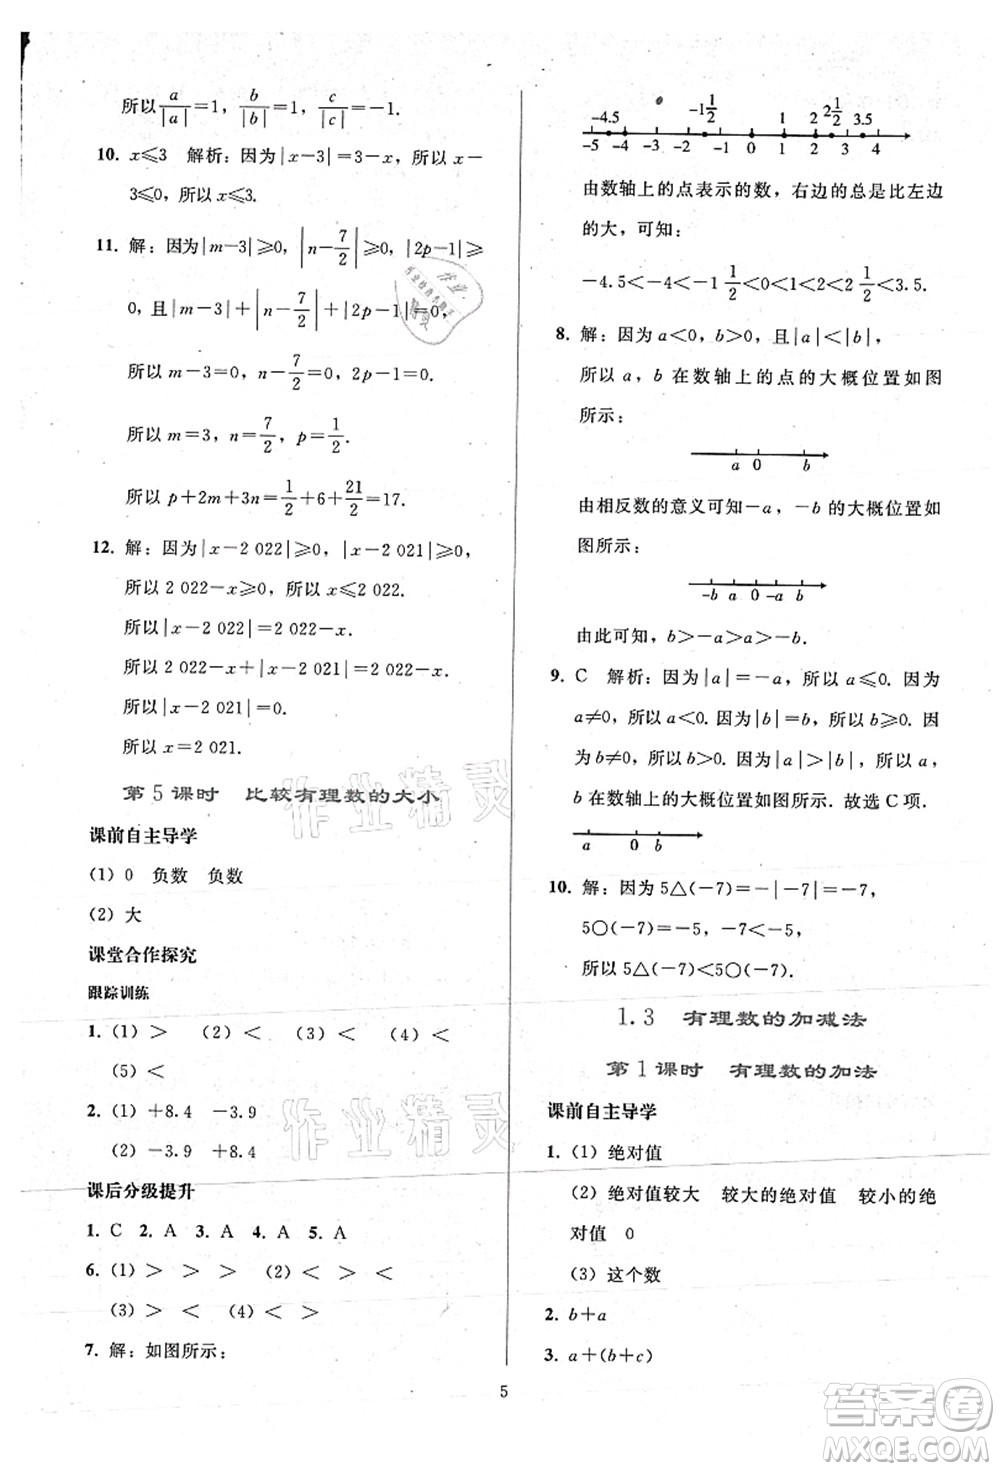 所以a/|a|=1, b/|b|=1, c/|c|=-1.
10. x≤3 解析：因为|x-3|=3-x，所以 x-
3≤0，所以 x≤3.
11. 解：因为|m-3|≥0，|n-7/2|≥0，|2p-1|≥
0，且|m-3|+|n-7/2|+|2p-1|=0，
所以 m-3=0，n-7/2=0，2p-1=0.
所以 m=3，n=7/2，p=1/2.
所以 p+2m+3n=1/2+6+21/2=17.
12. 解：因为|x-2 022|≥0，|x-2 021|≥0，
所以 2 022-x≥0，所以 x≤2 022.
所以|x-2 022|=2 022-x.
所以 2 022-x+|x-2 021|=2 022-x.
所以|x-2 021|=0.
所以 x=2 021.
第 5 课时 比较有理数的大小
课前自主导学
(1) 0 负数 负数
(2) 大
课堂合作探究
跟踪训练
1. (1) > (2) < (3) < (4) <
(5) <
2. (1) +8.4 -3.9
(2) -3.9 +8.4
课后分级提升
1. C 2. A 3. A 4. A 5. A
6. (1) > > > (2) < > <
(3) > < (4) < >
7. 解：如图所示：
-4.5 -1 1/2 1 2 2 1/2 3.5
-5 -4 -3 -2 -1 0 1 2 3 4
由数轴上的点表示的数，右边的总是比左边
的大，可知：
-4.5<-1 1/2<1<2<2 1/2<3.5.
8. 解：因为 a<0，b>0，|a|<|b|，
所以 a，b 在数轴上的点的大概位置如图
所示：
a 0 b
由相反数的意义可知-a，-b 的大概位置如
图所示：
-b a 0 -a b
由此可知，b>-a>a>-b.
9. C 解析：因为|a|=-a，所以 a≤0. 因为
a≠0，所以 a<0. 因为|b|=b，所以 b≥0. 因
为 b≠0，所以 b>0. 因为|a|>|b|，所以 a，
b 在数轴上的大概位置如图所示. 故选 C 项.
a 0 b
10. 解：因为 5△(-7)=-|-7|=-7，
5○(-7)=-5，-7<-5，
所以 5△(-7)<5○(-7).
1.3 有理数的加减法
第 1 课时 有理数的加法
课前自主导学
1. (1) 绝对值
(2) 绝对值较大 较大的绝对值 较小的绝
对值 0
(3) 这个数
2. b+a
3. a+(b+c)
5
作业精灵
作业精灵
答案卷
MXQE.COM